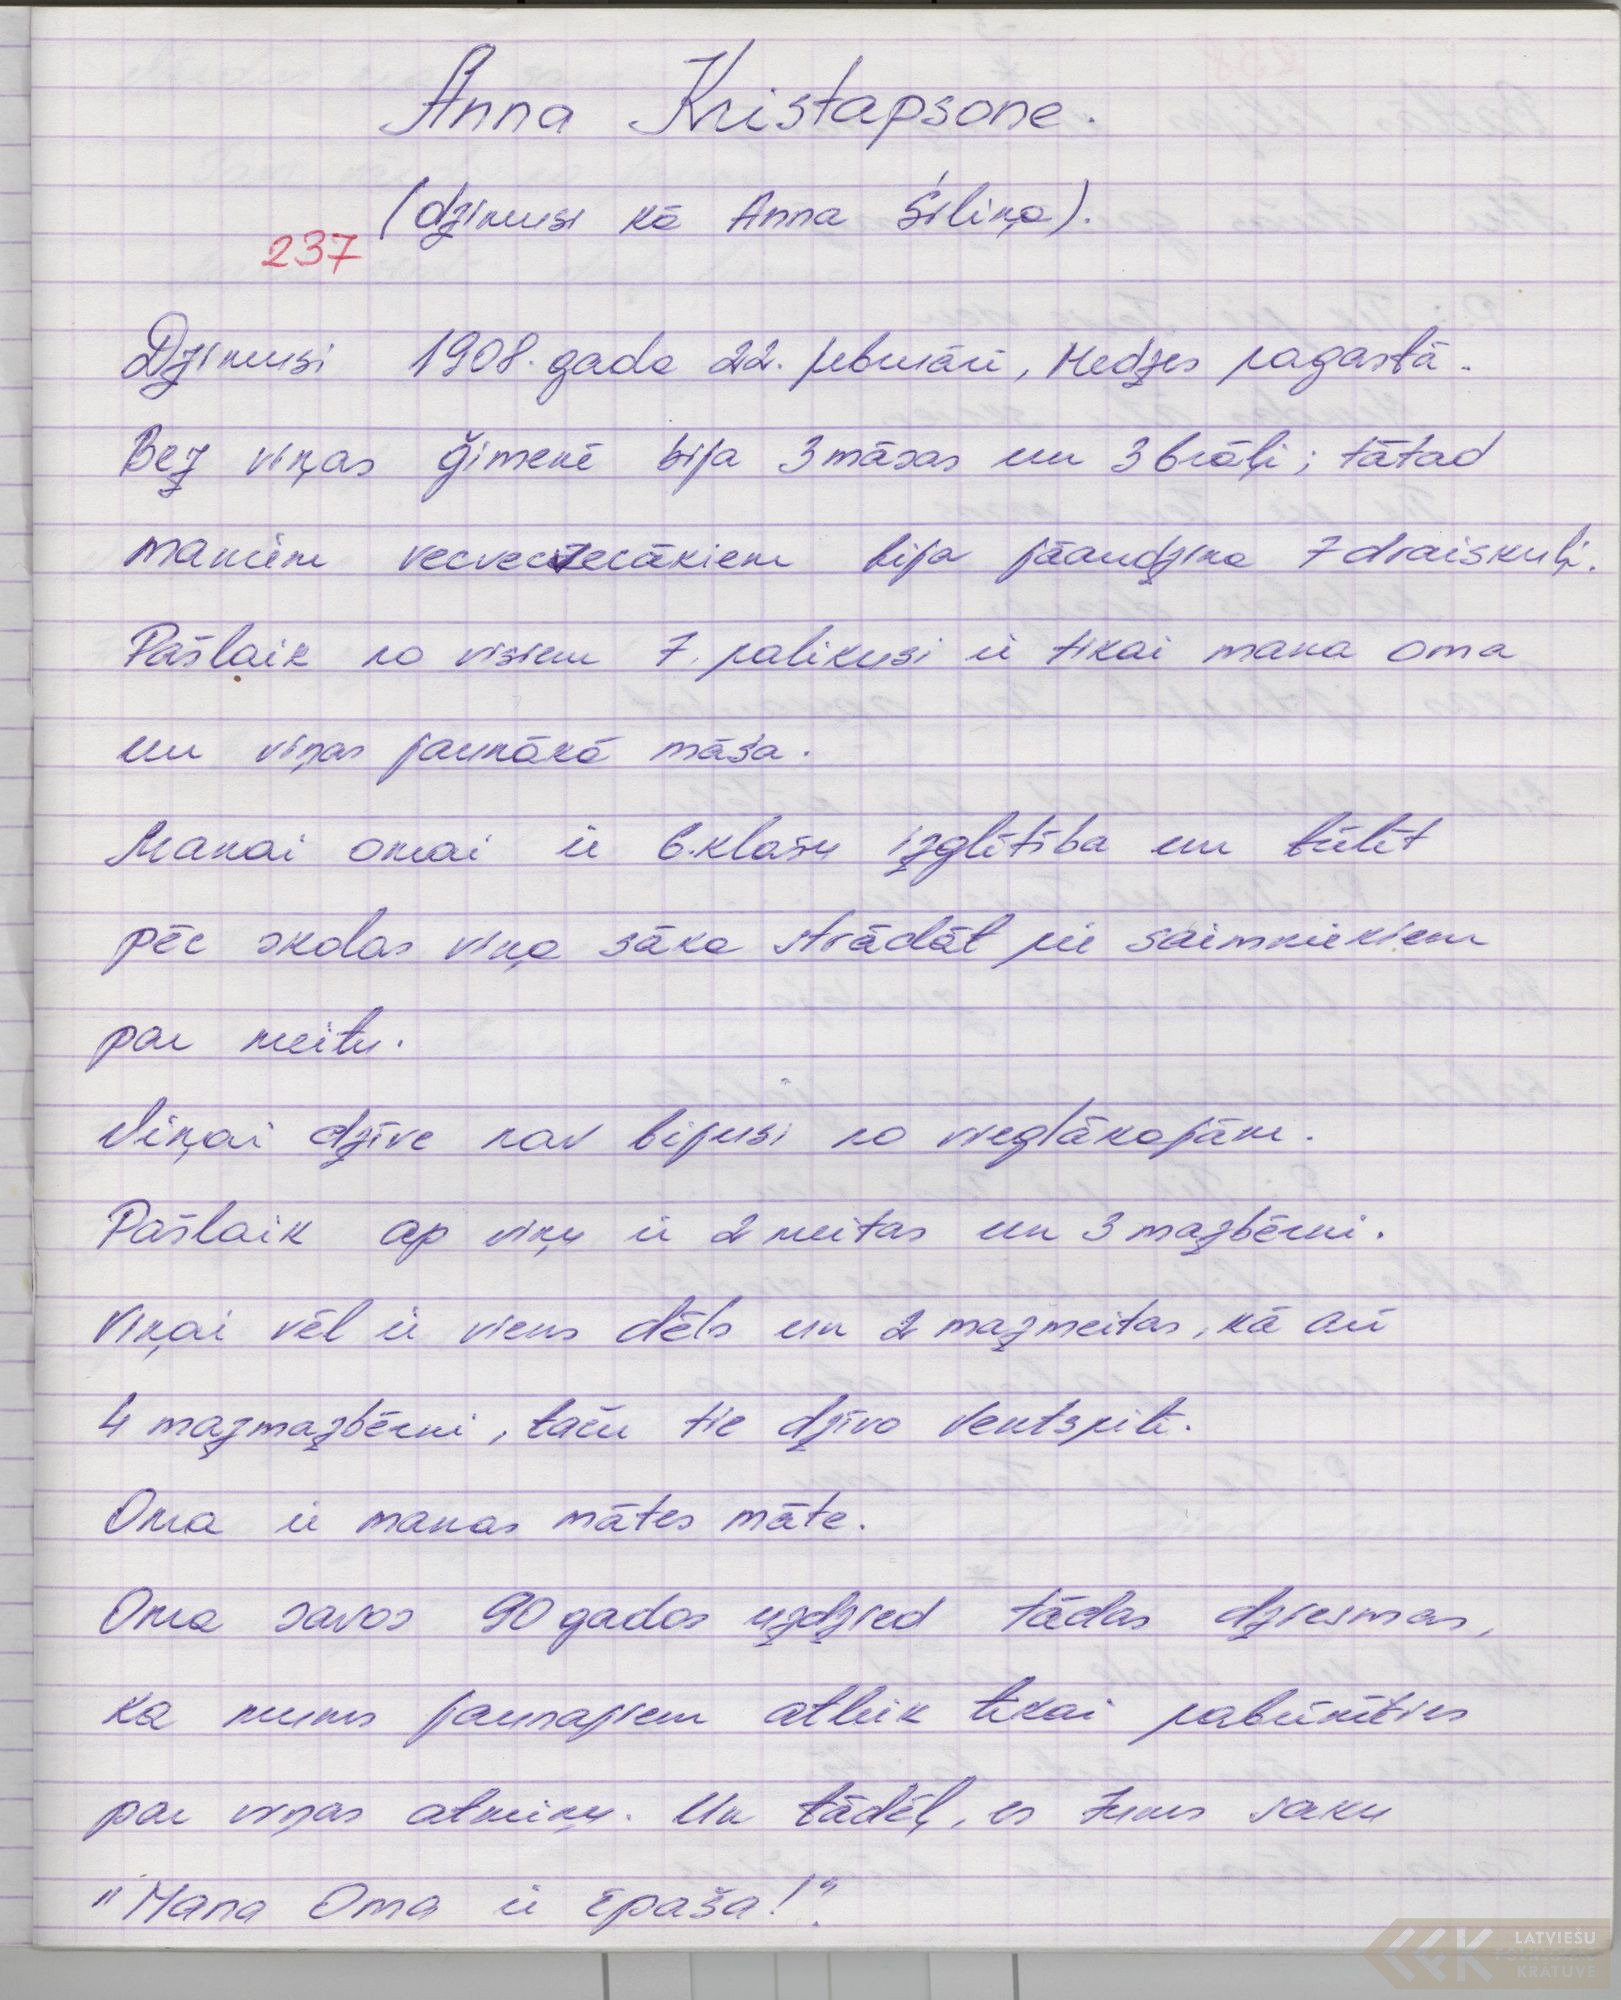 Anna Kristapsone.
(dzimusi kā Anna Siliņa).
237
Dzimusi 1908. gada 22. februārī, Medzes pagastā.
Bez viņas ģimenē bija 3 māsas un 3 brāļi; tātad
maniem vecvecvecākiem bija jāaudzina 7 draiskuļi.
Pašlaik no visiem 7, palikusi ir tikai mana oma
un viņas jaunākā māsa.
Manai omai ir 6.klašu izglītība un tūlīt
pēc skolas viņa sāka strādāt pie saimniekiem
par meitu.
Viņai dzīve nav bijusi no vieglākajām.
Pašlaik ap viņu ir 2 meitas un 3 mazbērni.
Viņai vēl ir viens dēls un 2 mazmeitas, kā arī
4 mazmazbērni, taču tie dzīvo Ventspilī.
Oma ir manas mātes māte.
Oma savos 90 gados uzdzied tādas dziesmas,
ka mums jaunajiem atliek tikai pabrīnīties
par viņas atmiņu. Un tādēļ, es Jums saku
"Mana Oma ir īpaša!".
LATVIEŠU
FOLKLORAS
KRĀTUVE